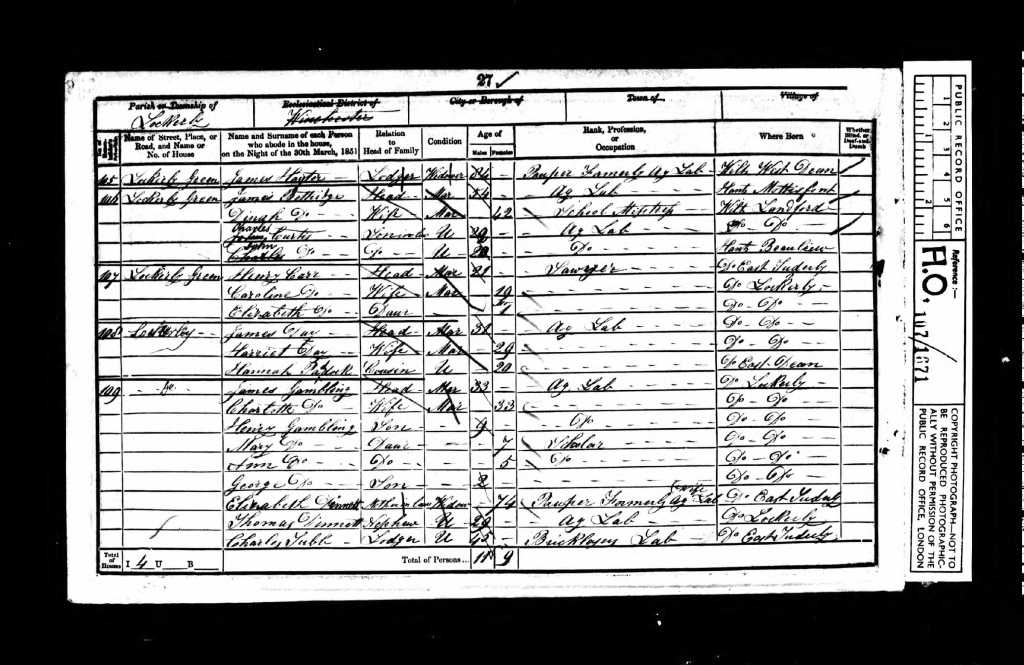 27
Parish or Township of
Ecclesiastical District of
City or Borough of
Town of
Village of
Lockerly
Winchester
Name of Street, Place, or Road, and Name or No. of House
Name and Surname of each Person who abode in the house, on the Night of the 30th March, 1851
Relation to Head of Family
Condition
Age of
Males Females
Rank, Profession, or Occupation
Where Born
Whether Blind, or Deaf-and-Dumb
105 Lockerly Green James Hayter Lodger Widower 84 Pauper Formerly Ag Lab Wilts West Dean
106 Lockerly Green James Head Mar 54 Ag Lab Hants Mottisfont
Dinah Do Wife Mar 42 School Mistress Wilts Landford
Charles Curtis U 20 Ag Lab Do Do
John Do Do U Do Hants Beaulieu
107 Lockerly Green Henry Head Mar 21 Sawyer Do East Tuderly
Caroline Do Wife Mar 19 Do Lockerly
Elizabeth Do Daur Do Do
108 Lockerley James Day Head Mar 31 Ag Lab Do Do
Harriet Day Wife Mar 29 Do Do
Hannah Cousin U 20 Do East Dean
109 Do James Gambling Head Mar 33 Ag Lab Do Lockerly
Charlotte Do Wife Mar 33 Do Do
Henry Gambling Son 9 Do Do Do
Mary Do Daur 7 Scholar Do Do
Ann Do Do 5 Do Do Do
George Do Son 2 Do Do
Elizabeth Dinnett Mother in law Widow 74 Pauper Formerly Ag Lab wife Do East Tuderly
Thomas Dinnett Nephew U 29 Ag Lab Do Lockerly
Charles Tubb Lodger U 45 Bricklayers Lab Do East Tuderly
Total of Houses I 4 U B
Total of Persons... 11 9
PUBLIC RECORD OFFICE
1 2 3 4 5 6
Reference :—
H.O. 107/1671
COPYRIGHT PHOTOGRAPH—NOT TO BE REPRODUCED PHOTOGRAPHICALLY WITHOUT PERMISSION OF THE PUBLIC RECORD OFFICE, LONDON